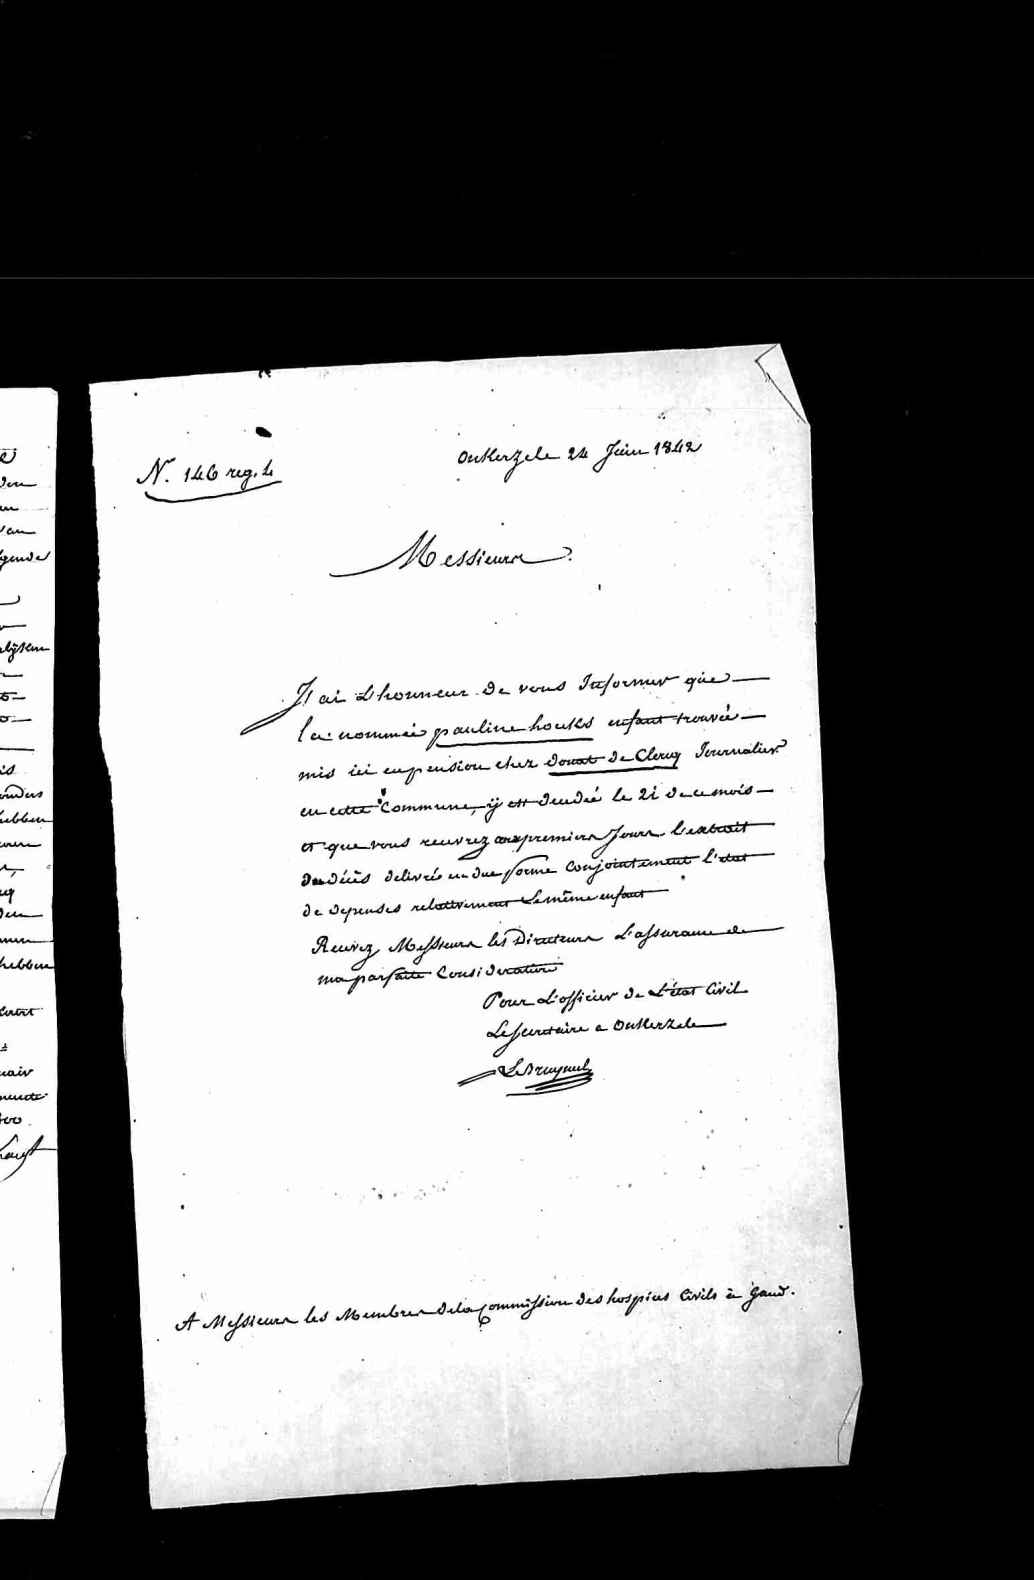 N. 146 reg. 4
Onkerzele 24 Juin 1842
Messieurs
J'ai L'honneur de vous Informer que
la nommée pauline houks enfant trouvée
mis ici en pension chez donat de Clercq Journalier
en cette Commune, ÿ est decedée le 21 de ce mois
et que vous recevrez aux premiers Jours l'extrait
de décès delivrée en due forme Conjointement l'état
de depenses relativement Le même enfant
Recevez Messieurs les Directeurs L'assurance de
ma parfaite Consideration
Pour L'officier de L'état Civil
Le secretaire a Onkerzele
A Messieurs les Membres de la Commission des hospices Civils à Gand.